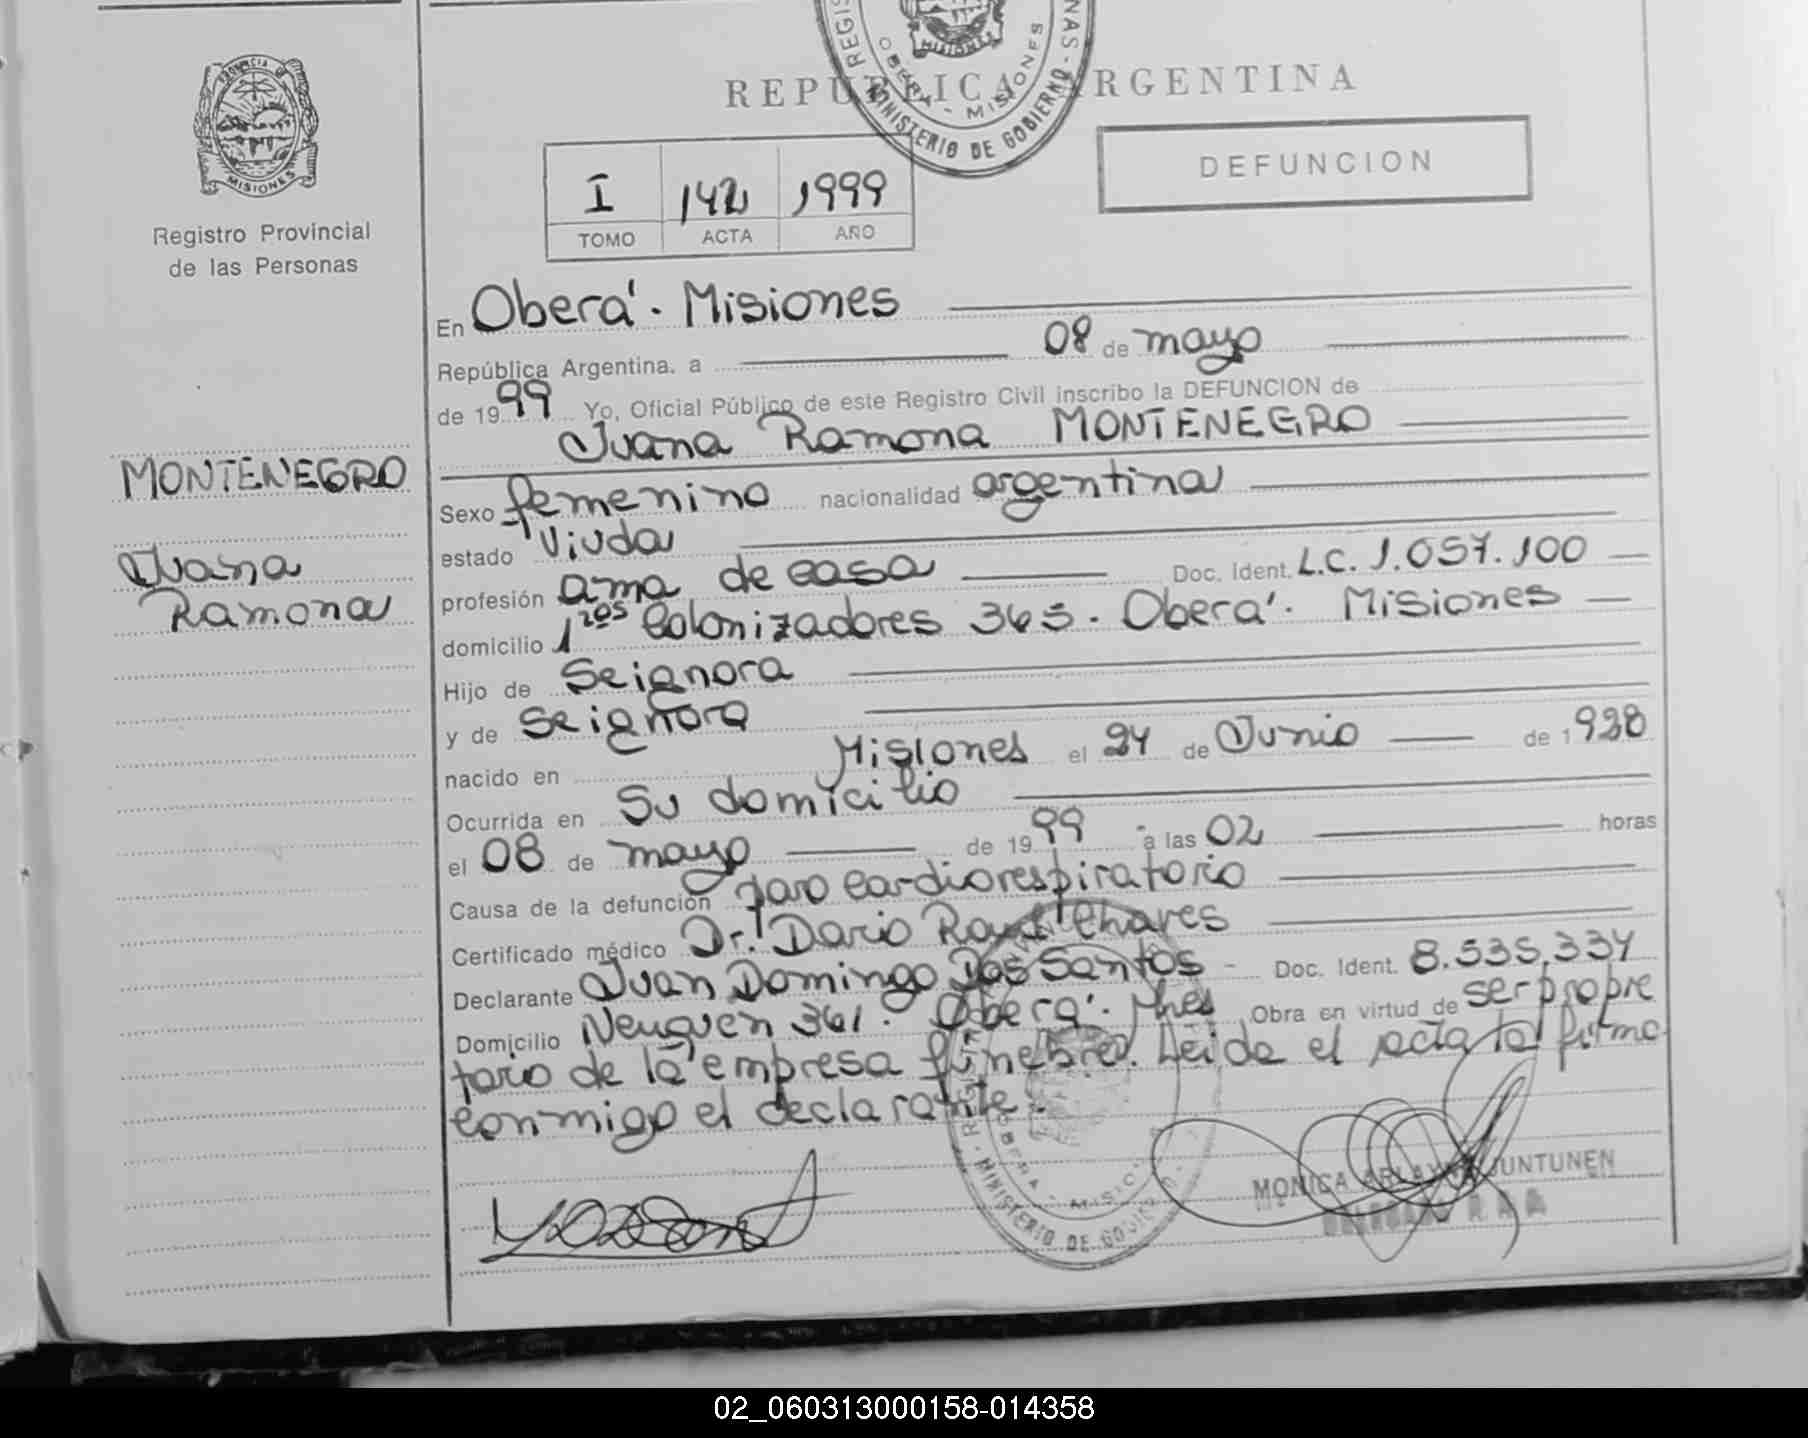 PROVINCIA DE
MISIONES
Registro Provincial
de las Personas
MONTENEGRO
Juana
Ramona
MISIONES
OBERA - MISIONES
MINISTERIO DE GOBIERNO
REPUBLICA ARGENTINA
I 142 1999
TOMO ACTA AÑO
DEFUNCION
En Oberá. Misiones
República Argentina. a 08 de mayo
de 1999 Yo, Oficial Público de este Registro Civil inscribo la DEFUNCION de
Juana Ramona MONTENEGRO
Sexo femenino nacionalidad argentina
estado Viuda
profesión ama de casa Doc. Ident. L.C. 1.057.100
domicilio 1ros Colonizadores 365. Oberá. Misiones
Hijo de Se ignora
y de Se ignora
nacido en Misiones el 24 de Junio de 1928
Ocurrida en Su domicilio
el 08 de mayo de 1999 a las 02 horas
Causa de la defunción paro cardiorespiratorio
Certificado médico Dr. Dario Raul Chaves
Declarante Juan Domingo Dos Santos - Doc. Ident. 8.535.334
Domicilio Neuquen 361. Oberá. Mnes Obra en virtud de ser propie
tario de la empresa fúnebre. Leida el acta la firma
conmigo el declarante.
MINISTERIO DE GOBIERNO
MONICA JUNTUNEN
02_060313000158-014358